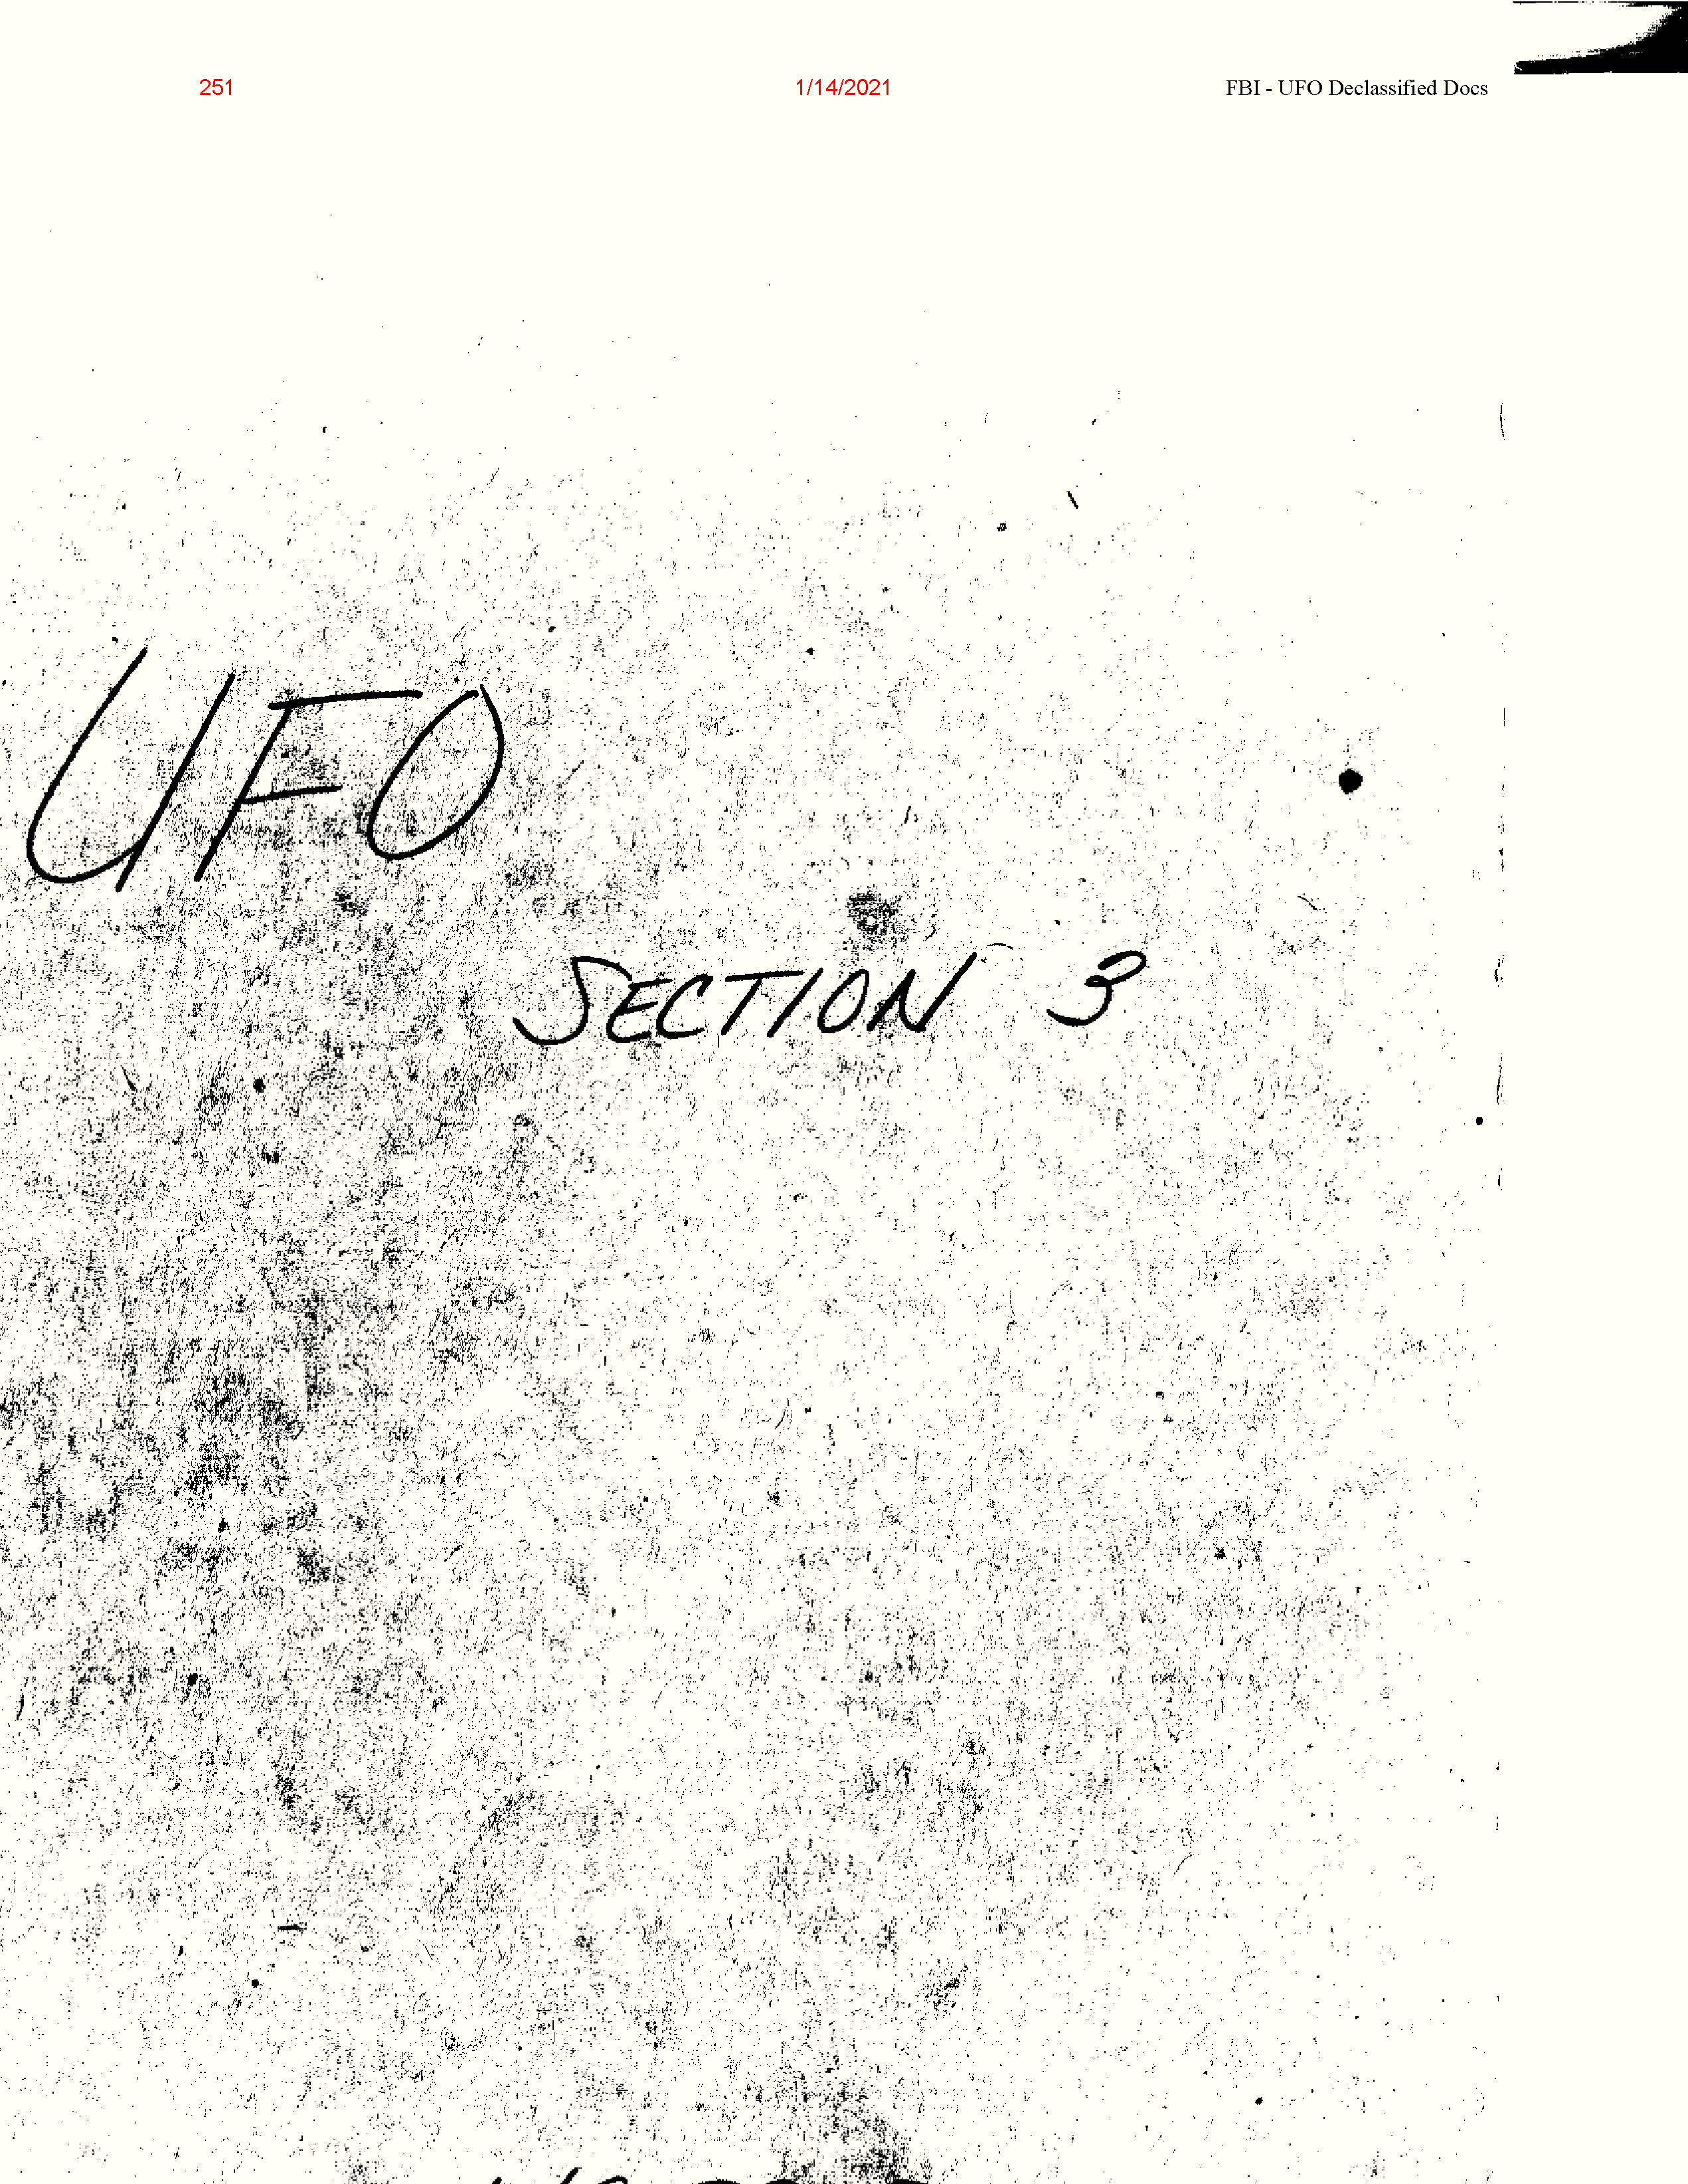 251 1/14/2021 FBI - UFO Declassified Docs
UFO
SECTION 3